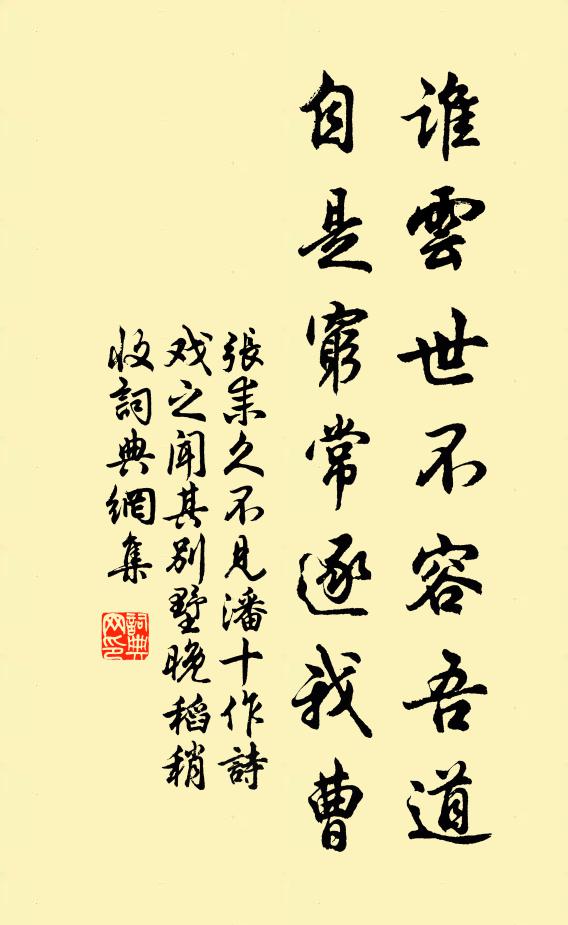 誰雲世不容吾道
自是窮常逐我曹
張耒久不見潘十作詩
戏之闻其别墅晚稻稍
收詞典網集
詞典
网印